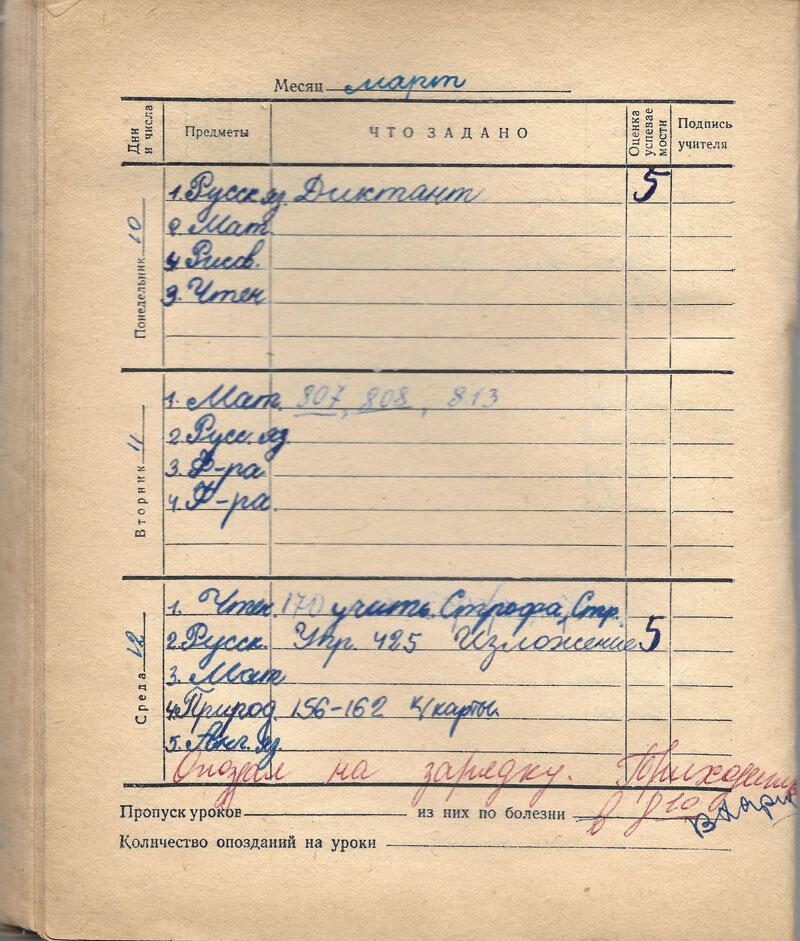 Месяц март
Дни и числа Предметы ЧТО ЗАДАНО Оценка успеваемости Подпись учителя
Понедельник 10
1. Русск яз. Диктант 5
2 Мат.
4 Рисов.
3. Чтен
Вторник 11
1. Мат. 807, 808, 813
2. Русс. яз
3. Ф-ра
4. Ф-ра.
Среда 12
1. Чтен. 170 учить. Строфа, Стр.
2. Русск. Упр. 425 Изложение 5
3. Мат
4. Природ. 156-162 к/карты.
5. Анг. яз.
Опоздал на зарядку. Приходить
Пропуск уроков из них по болезни в 8 10
Количество опозданий на уроки